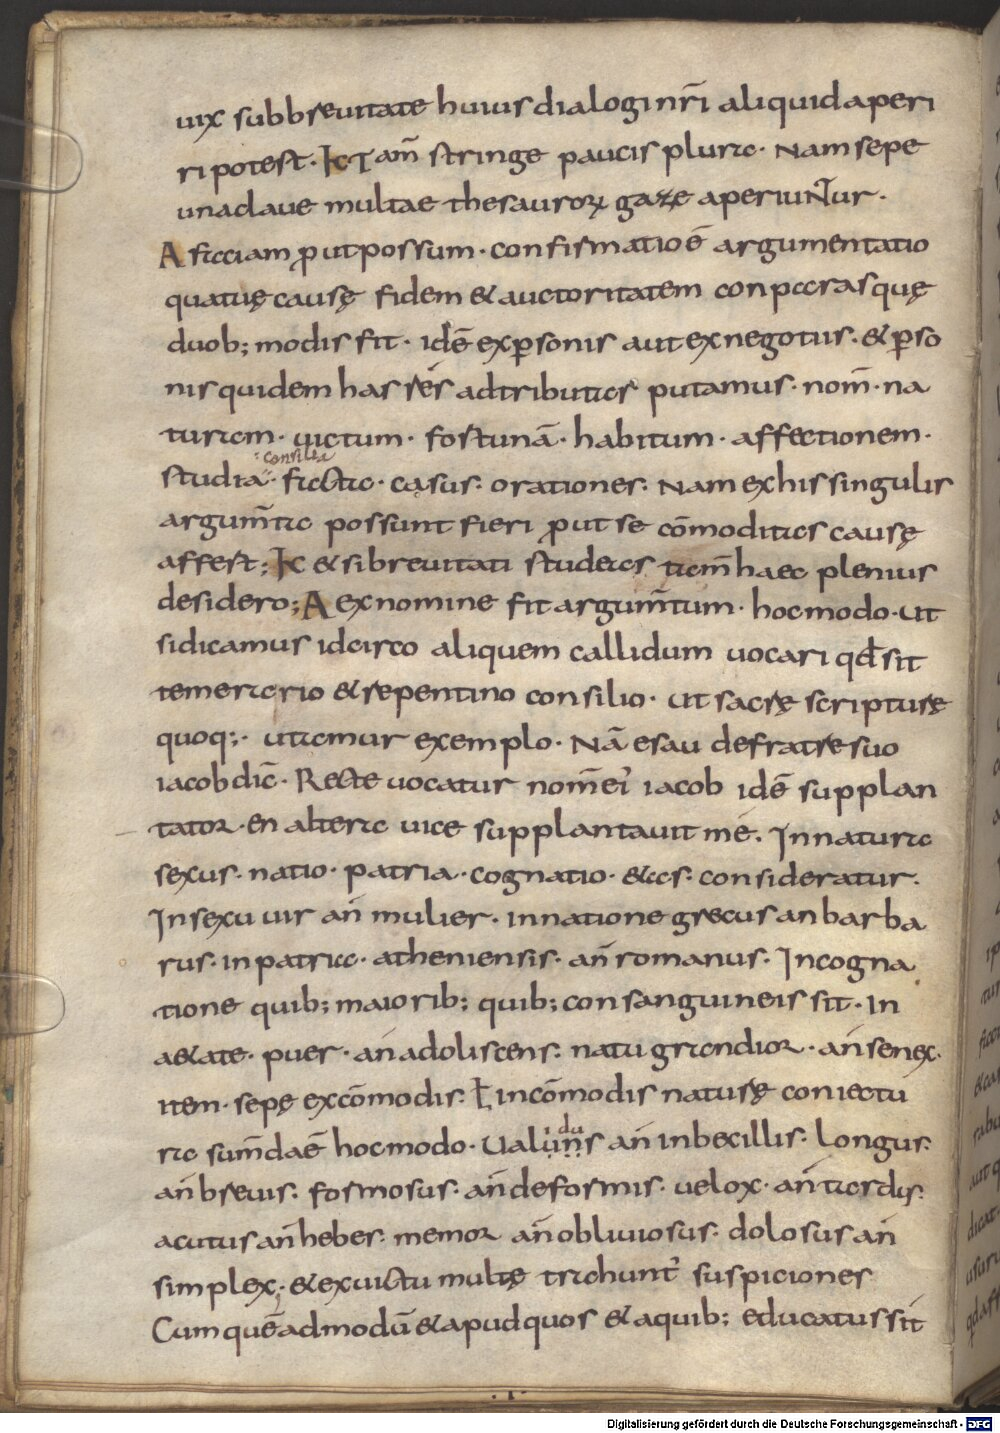 uix subbreuitate huius dialogi nr̄i aliquid aperi
ri potest. K̄ Tam̄ stringe paucis plura. Nam sepe
una claue multae thesauroꝝ gazę aperiuntur.
A Faciam ꝓut possum. confirmatio ē argumentatio
quatuę causę fidem & auctoritatem conparas quę
duob; modis fit. idē ex ꝑsonis aut ex negotiis. & ꝑso
nis quidem has res adtributas putamus. nom̄. na
turam. uictum. fortunā. habitum. affectionem.
consilia
studia. facta. casus. orationes. Nam ex his singulis
argum̄ta possunt fieri ꝓut se cōmoditas causę
affert; K̄ & si breuitati studeas tam̄ haec plenius
desidero; A ex nomine fit argum̄tum. hoc modo. ut
si dicamus idcirco aliquem callidum uocari qđ sit
temerario & repentino consilio. ut sacrę scripturę
quoq;. utamur exemplo. Nā esau de fratre suo
iacob dic̄. Recte uocatur nom̄ ei' iacob idē supplan
tator. en altera uice supplantauit me. In natura
sexus. natio. patria. cognatio. &as. consideratur.
In sexu uir an̄ mulier. in natione grecus an barba
rus. in patria. atheniensis. an̄ romanus. In cogna
tione quib; maiorib; quib; consanguineis sit. in
a&ate. puer. an̄ adoliscens. natu grandior. an̄ senex.
item. sepę ex cōmodis. ł incōmodis naturę coniectu
du
ra sum̄da ē hoc modo. Ualuns an̄ inbecillis. longus.
an̄ breuis. formosus. an̄ deformis. uelox. an̄ tardus.
acutus an̄ hebes. memor an̄ obliuiosus. dolosus an̄
simplex. & ex uictu multę trahunt' suspiciones
Cum quēadmodū & apud quos & a quib; educatus sit
Digitalisierung gefördert durch die Deutsche Forschungsgemeinschaft - DFG